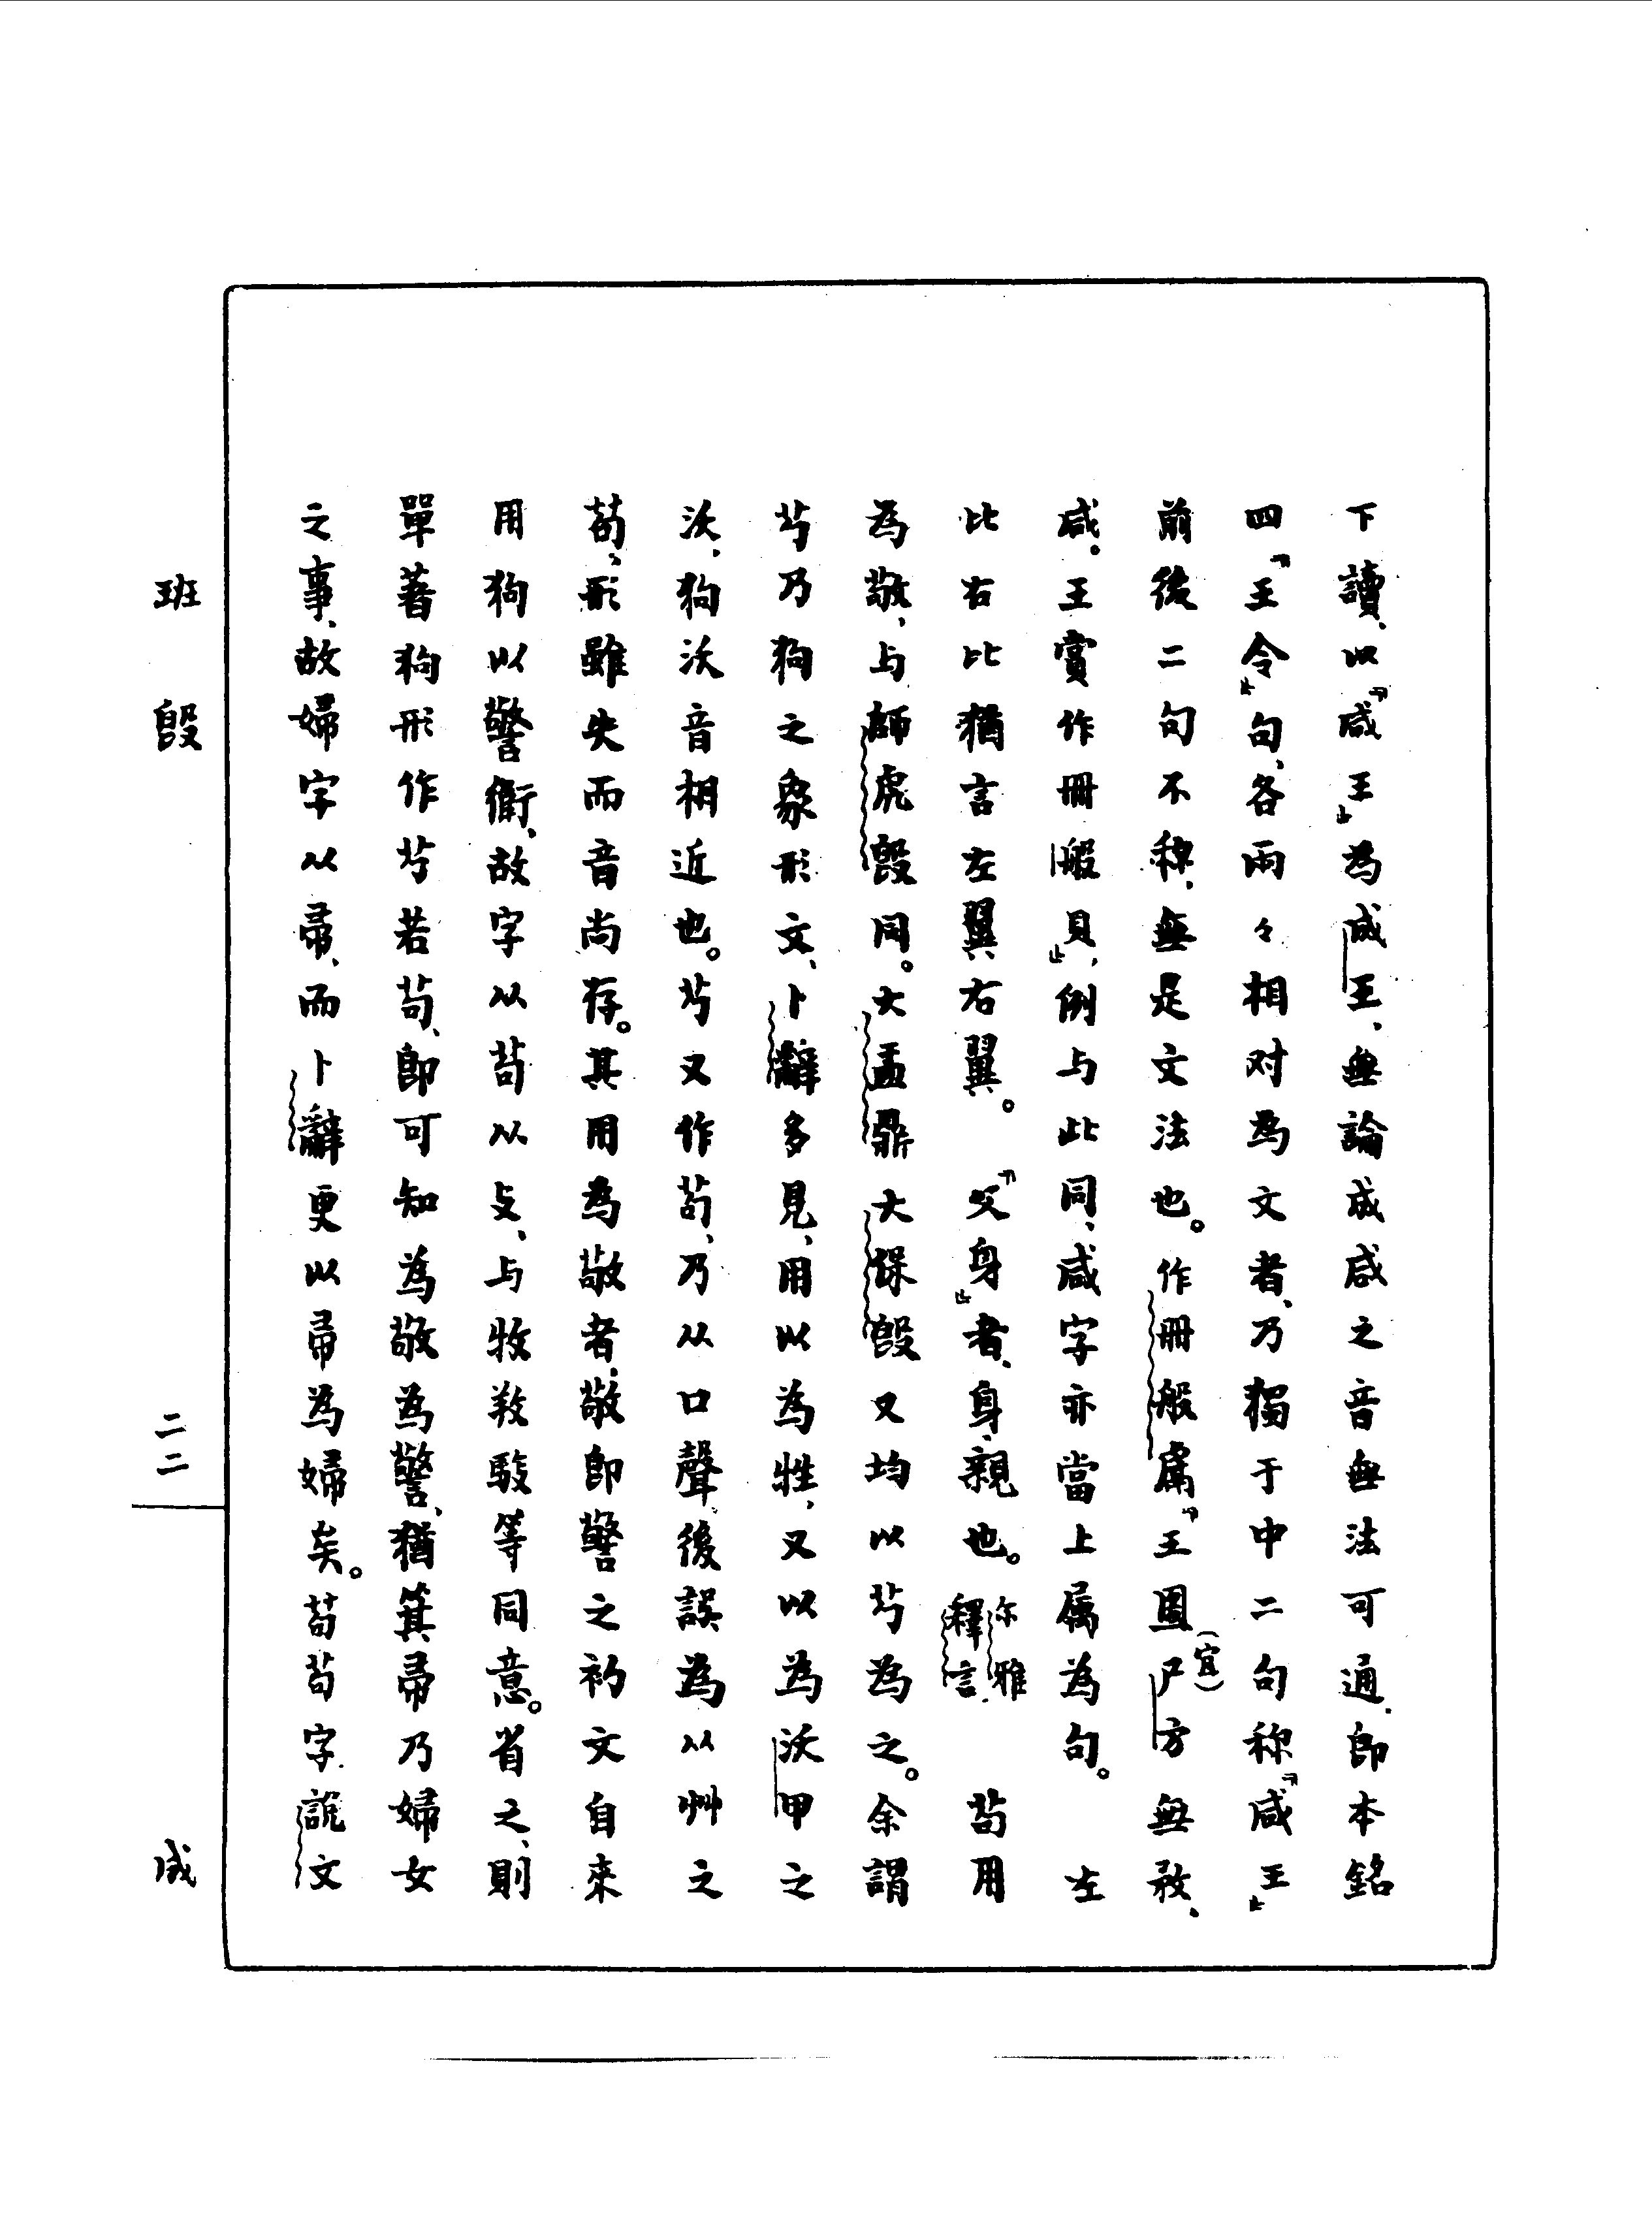 下讀、以『咸王』為成王、無論成咸之音無法可通、即本銘
四『王令』句、各兩々相对為文者、乃獨于中二句称『咸王』
前後二句不称、無是文法也。作冊般甗『王圂(宜)尸方無敄、
咸。王賞作冊般貝』、例与此同、咸字亦當上属為句。 左
比右比猶言左翼右翼。 『父身』者、身、親也。尔雅釋言. 茍用
為敬、与師虎𣪘同。大盂鼎大保𣪘又均以芍為之。余謂
芍乃狗之象形文、卜辭多見、用以為牲、又以為沃甲之
沃、狗沃音相近也。芍又作茍、乃从口聲、後誤為从艸之
苟、形雖失而音尚存。其用為敬者、敬即警之初文自來
用狗以警衛、故字从茍从攴、与牧敹駿等同意。省之、則
單著狗形作芍若茍、即可知為敬為警、猶箕帚乃婦女
之事、故婦字从帚、而卜辭更以帚為婦矣。茍苟字.說文
班𣪘
二二
成